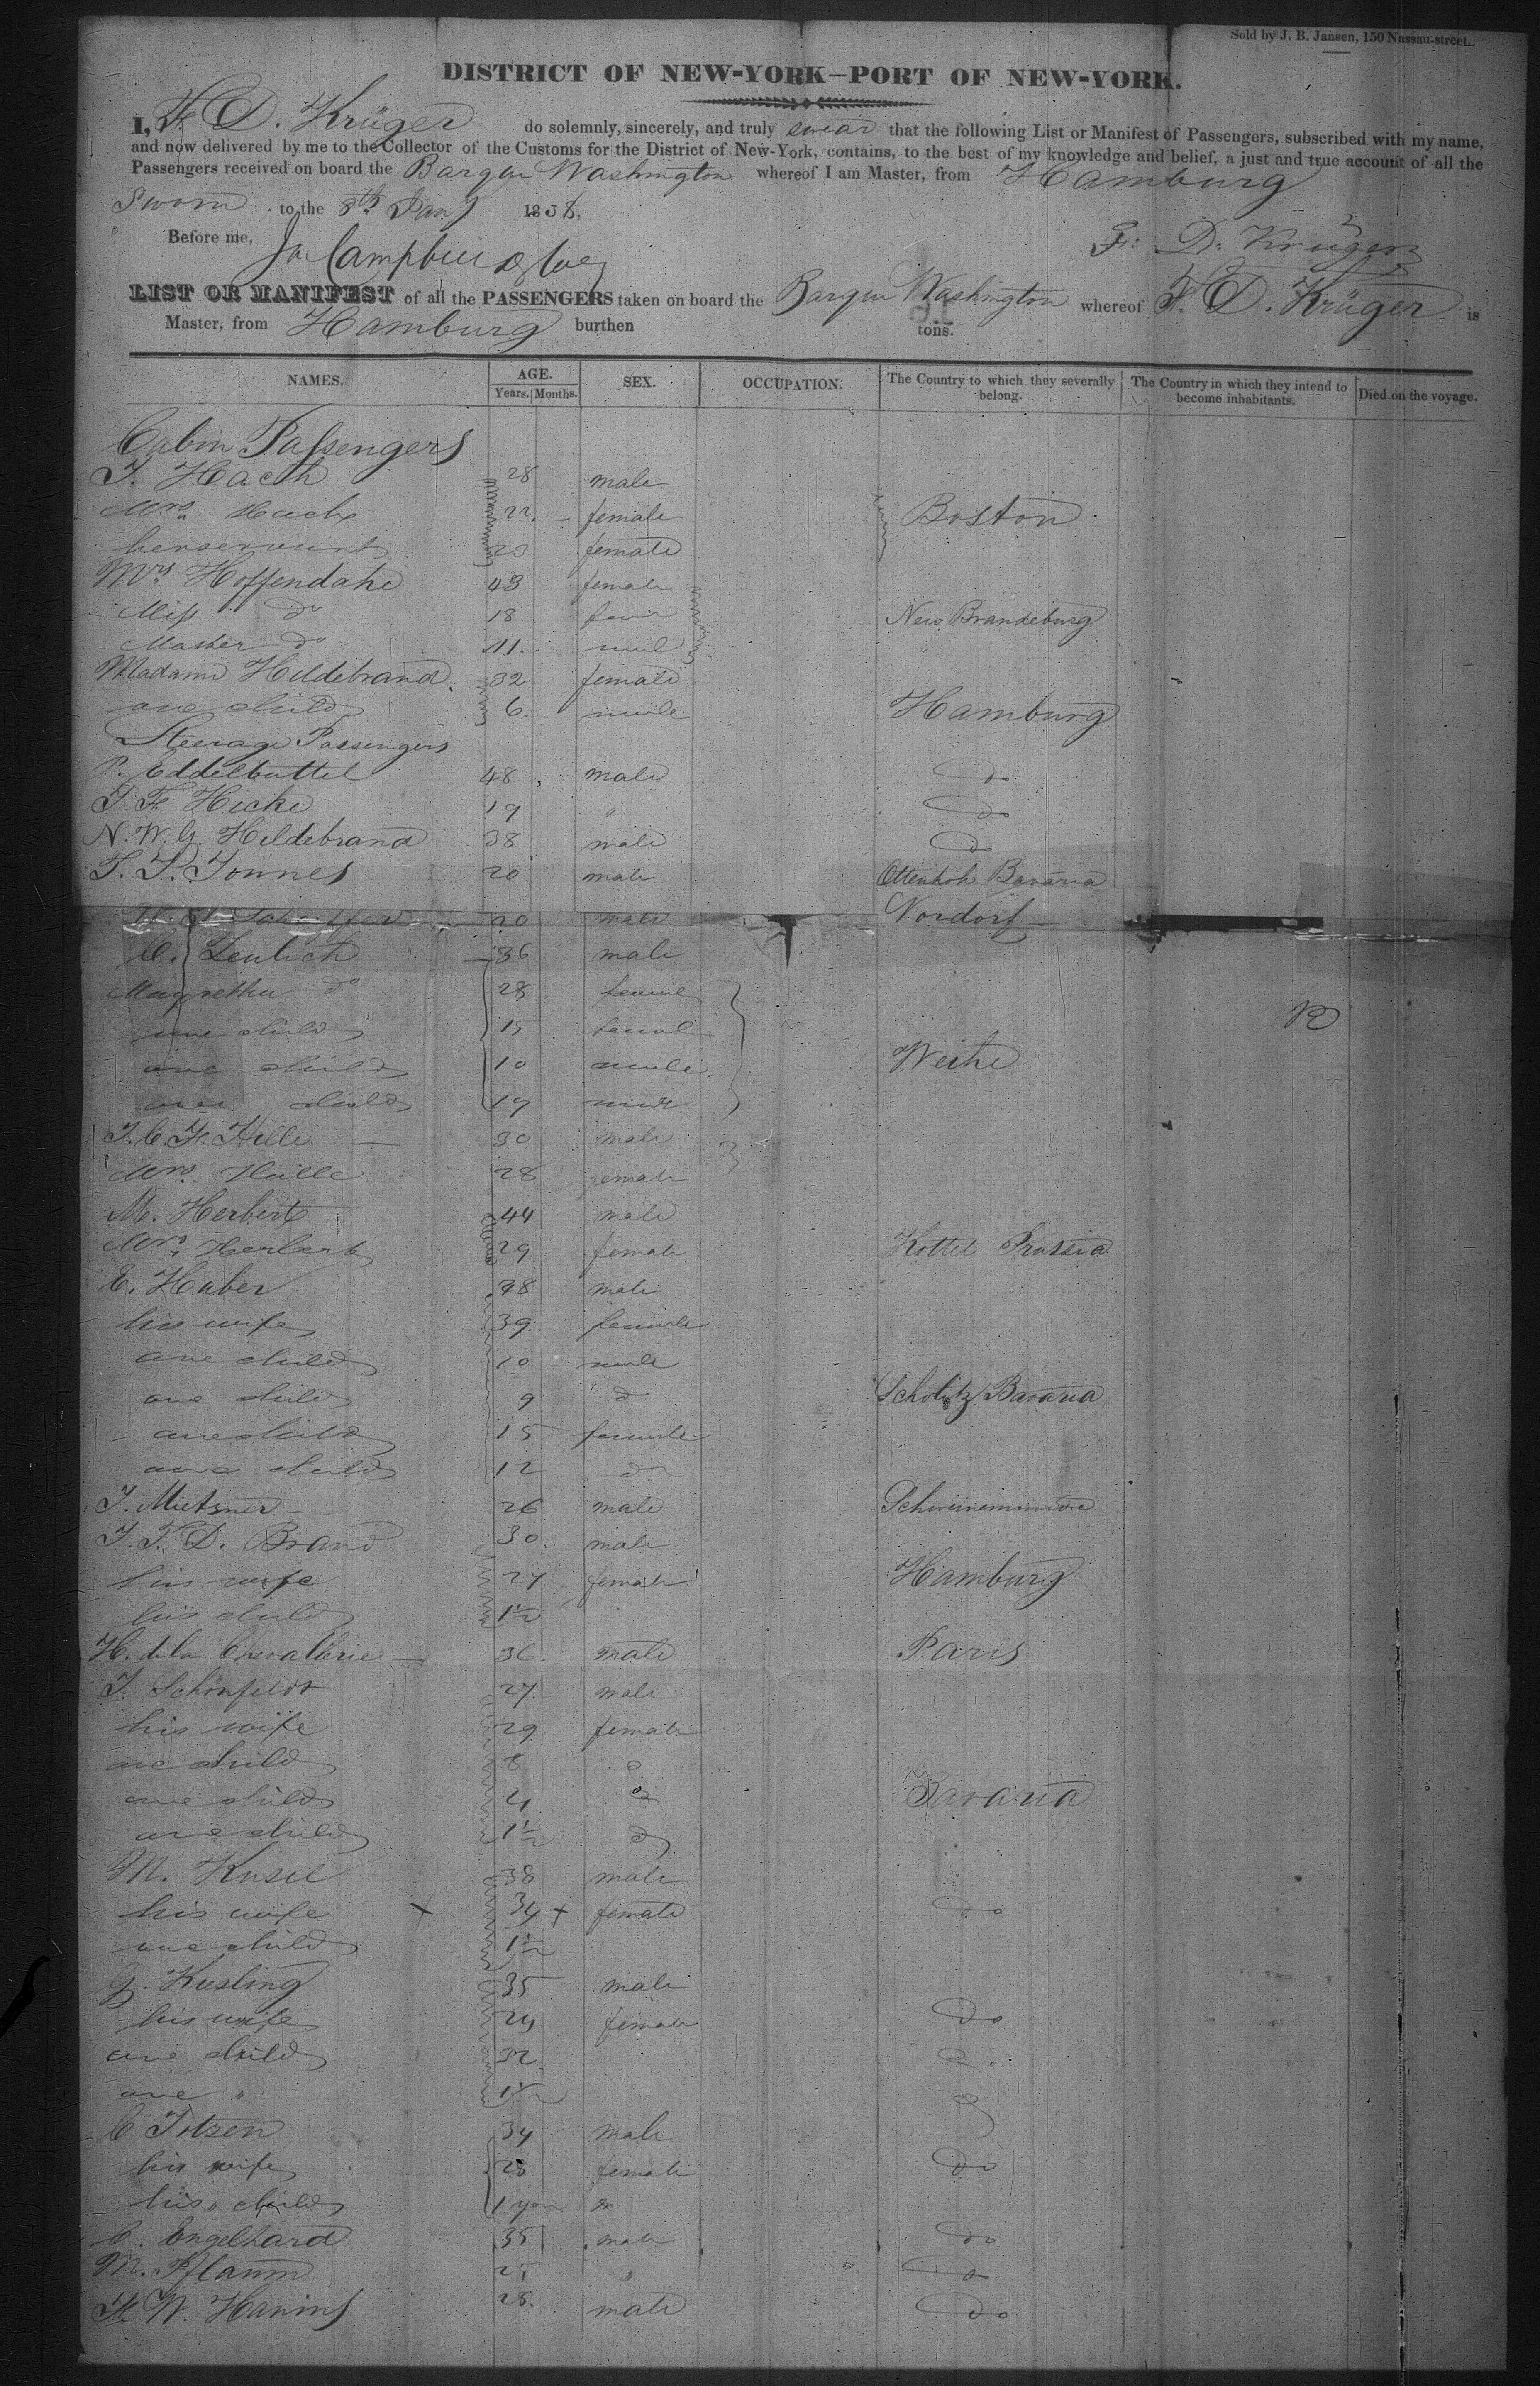 Sold by J. B. Jansen, 150 Nassau-street.
DISTRICT OF NEW-YORK—PORT OF NEW-YORK.
I, F. D. Krüger do solemnly, sincerely, and truly swear that the following List or Manifest of Passengers, subscribed with my name,
and now delivered by me to the Collector of the Customs for the District of New-York, contains, to the best of my knowledge and belief, a just and true account of all the
Passengers received on board the Barque Washington whereof I am Master, from Hamburg
Sworn to the 8th Jany 1838,
Before me, F. D. Krüger
LIST OR MANIFEST of all the PASSENGERS taken on board the Barque Washington whereof F. D. Krüger is
Master, from Hamburg burthen tons.
NAMES. AGE. Years. Months. SEX. OCCUPATION. The Country to which they severally belong. The Country in which they intend to become inhabitants. Died on the voyage.
Cabin Passengers
T. Hach 28 male
Mrs. Hach 22. female Boston
her servant 20 female
Mrs Hoffendahl 43 female
Miss do 18 New Brandeburg
Master do 11.
Madame Hildebrand. 32 female
one child 6. male Hamburg
Steerage Passengers
P. Eddelbuttel 48 male do
T. F. Hicke 19 " do
N. W. G. Hildebrand 38 male do
T. P. Tonnes 20 male Bavaria
20 male Nordorf
C. Leulich 36 male
Magretha do 28 female
one child 15
one child 10 male Weihe
one child 19
T. C. F. Hille 30 male
Mrs. Hille 28 female
M. Herbert 44 male
Mrs. Herbert 29 female Kottel Prussia
E. Huber 38 male
his wife 39 female
one child 10 male
one child 9 d Scholitz Bavaria
one child 15 female
one child 12 d
T. Mietsner 26 male Schweinemunde
T. F. D. Brand 30. male
his wife 27 female Hamburg
his child 1½
H. de la Chevallerie 36. male Paris
T. Schönfeldt 27. male
his wife 29 female
one child 8
one child 4 Bavaria
one child 1½ d
M. Kusel 38 male
his wife × 34 × female do
one child 1½
G. Kusling 35 male
his wife 29 female do
one child
one " 1½
C Totzen 34 male
his wife 28 female do
his " child 1 year
C. Engelhard 35 male do
M. Pflaum 25 " do
F. W. Hanins 28. male do